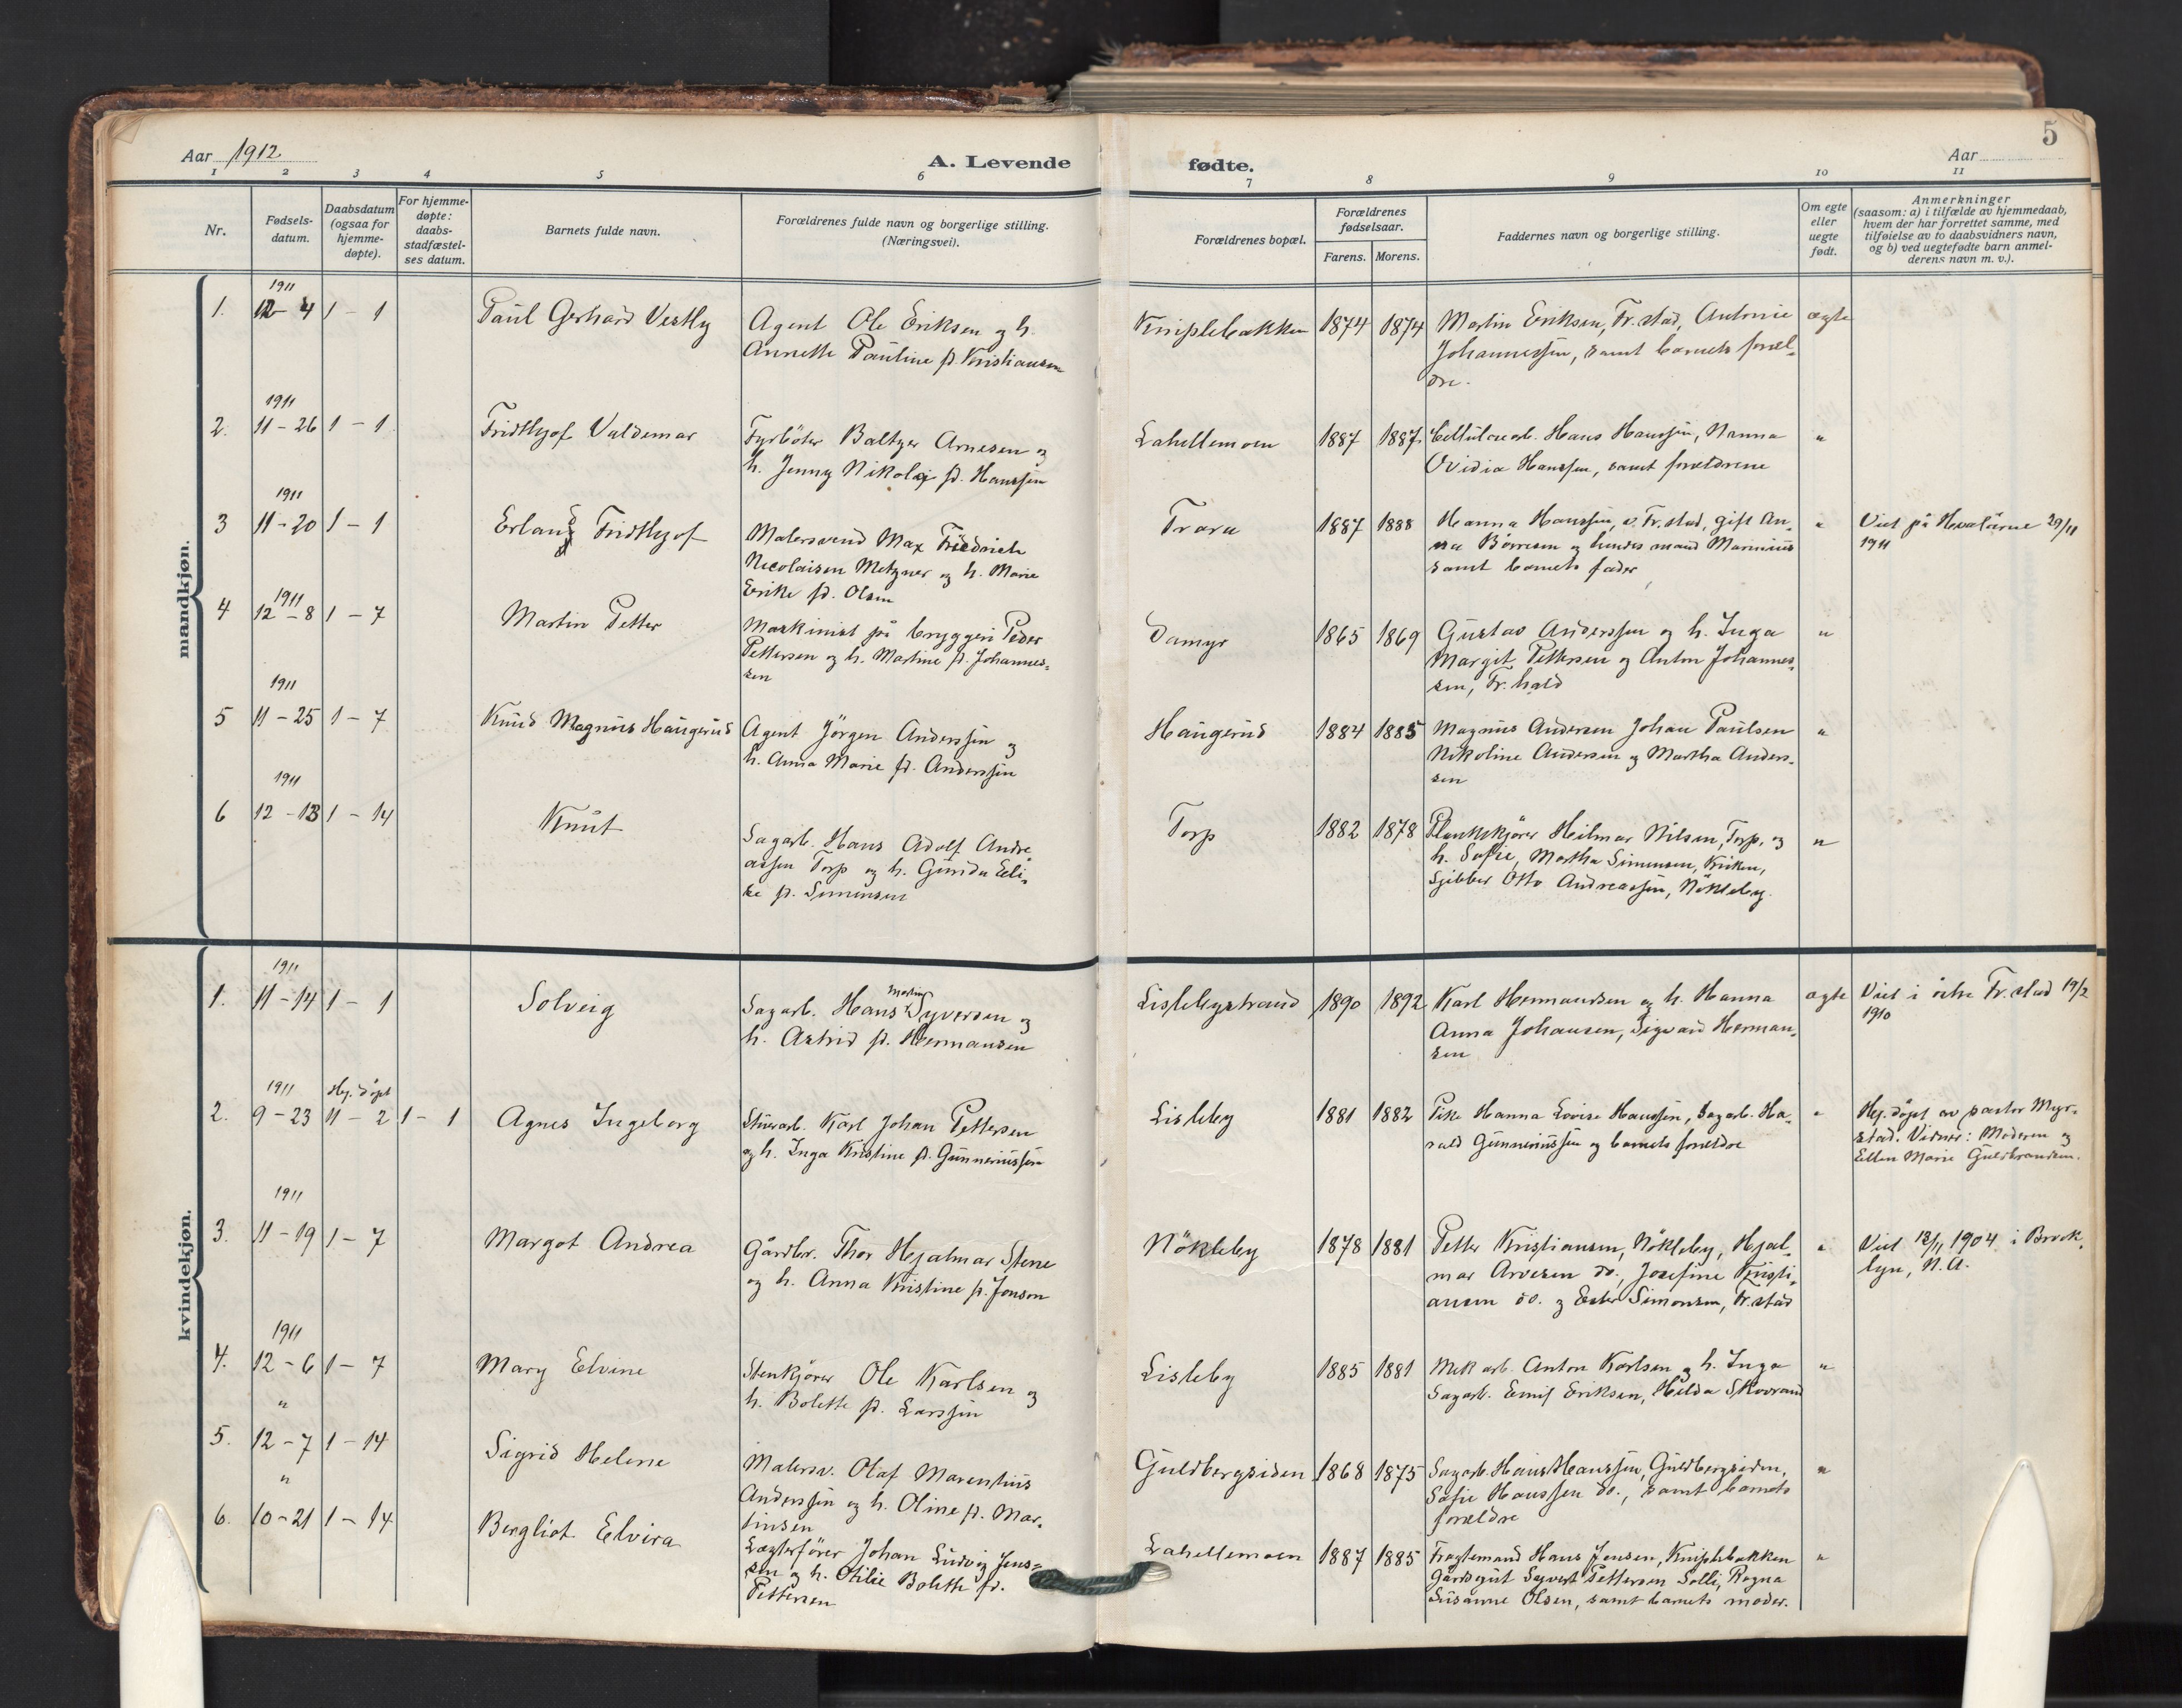 Aar 1912
A. Levende
fødte.
Aar
5
1 2 3 4 5 6 7 8 9 10 11
Nr.
Fødsels-
datum.
Daabsdatum
(ogsaa for
hjemme-
døpte).
For hjemme-
døpte:
daabs-
stadfæstel-
ses datum.
Barnets fulde navn.
Forældrenes fulde navn og borgerlige stilling.
(Næringsvei).
Forældrenes bopæl.
Forældrenes
fødselsaar.
Farens. Morens.
Faddernes navn og borgerlige stilling.
Om egte
eller
uegte
født.
Anmerkninger
(saasom: a) i tilfælde av hjemmedaab,
hvem der har forrettet samme, med
tilføielse av to daabsvidners navn,
og b) ved uegtefødte barn anmel-
derens navn m. v.).
mandkjøn.
1911
1. 12 - 4 1 - 1 Paul Gerhard Vestly
Agent Ole Eriksen og h.
Annette Pauline f. Kristiansen
Kniplebakken 1874 1874
Martin Eriksen, Fr.stad, Antonie
Johannessen, samt barnets forel-
dre.
ægte
1911
2. 11 - 26 1 - 1 Fridthjof Valdemar
Fyrböter Baltzer Arnesen og
h. Jenny Nikolai fd. Hanssen
Lahellemoen 1887 1887
Cellulosearb. Hans Hanssen, Nanna
Ovidia Hanssen, samt forældrene
"
1911
3 11 - 20 1 - 1 Erland Fridthjof
Malersvend Max Friedrich
Nicolaisen Metzner og h. Marie
Erikke fd. Olsen
Trara 1887 1888
Hanna Hanssen, v. Fr.stad, gift An-
na Börresen og hendes mand Marinius
samt barnets fader
"
Viet på Hvalörne 29/11
1911
1911
4 12 - 8 1 - 7 Martin Petter
Maskinist på bryggeri Peder
Pettersen og h. Martine f. Johannes-
sen
Damyr 1865 1869
Gustav Anderssen og h. Inga
Margit Pettersen og Anton Johannes-
sen, Fr.hald
"
1911
5 11 - 25 1 - 7 Knud Magnus Haugerud
Agent Jörgen Anderssen og
h. Anna Marie fd. Anderssen
Haugerud 1884 1885
Magnus Andersen Johan Paulsen
Nikoline Andersen og Martha Anders-
sen
"
1911
6 12 - 13 1 - 14 Knut
Sagarb. Hans Adolf Andre
assen Torp og h. Gunda Eli-
se f. Simensen
Torp 1882 1878
Plankekjörer Hilmar Nilsen, Torp, og
h. Sofie, Martha Simensen, Kriken,
Sjöbber Otto Andreassen, Nökleby.
"
kvindekjøn.
1911
1. 11 - 14 1 - 1 Solveig
Martin
Sagarb. Hans Syversen og
h. Astrid f. Hermansen
Lislebystrand 1890 1892
Karl Hermandsen og h. Hanna
Anna Johansen, Sigvard Herman-
sen
ægte
Viet i östre Fr.stad 19/2
1910
1911 Hj. döpt
2. 9 - 23 11 - 2 1 - 1 Agnes Ingeborg
Stuerarb. Karl Johan Pettersen
og h. Inga Kristine fd. Gunneriussen
Lisleby 1881 1882
Pike Hanna Lovise Hanssen, Sagarb. Ha-
rald Gunneriussen og barnets foreldre
"
Hj. döpt av pastor Myr-
stad. Vidner: Moderen og
Ellen Marie Guldbrandsen.
1911
3. 11 - 19 1 - 7 Margot Andrea
Gårdbr. Thor Hjalmar Stene
og h. Anna Kristine f. Jonson
Nökleby 1878 1881
Petter Kristiansen, Nökleby, Hjal-
mar Arvesen do., Josefine Kristi-
ansen do. og Ester Simonsen, Fr.stad
"
Viet 18/11 1904 i Brook-
lyn, N.A.
1911
4. 12 - 6 1 - 7 Mary Elvine
Stenkjörer Ole Karlsen og
h. Bolette fd. Larssen
Lisleby 1885 1881
Mek arb. Anton Karlsen og h. Inga
Sagarb. Emil Eriksen, Hilda Skovrand
"
"
5. 12 - 7 1 - 14 Sigrid Helene
Malersv. Olaf Marentius
Anderssen og h. Oline f. Mar-
tinsen
Guldbergsiden 1868 1875
Sagarb. Hans Hanssen, Guldbergsiden,
Sofie Hanssen do., samt barnets
foreldre
"
"
6. 10 - 21 1 - 14 Bergliot Elvira
Lægterförer Johan Ludvig Jens-
sen og h. Otilie Bolette fd.
Pettersen
Lahellemoen 1887 1885
Fragtemand Hans Jensen, Kniplebakken
Gårdsgut Syvert Pettersen Solli, Ragna
Susanne Olsen, samt barnets moder.
"